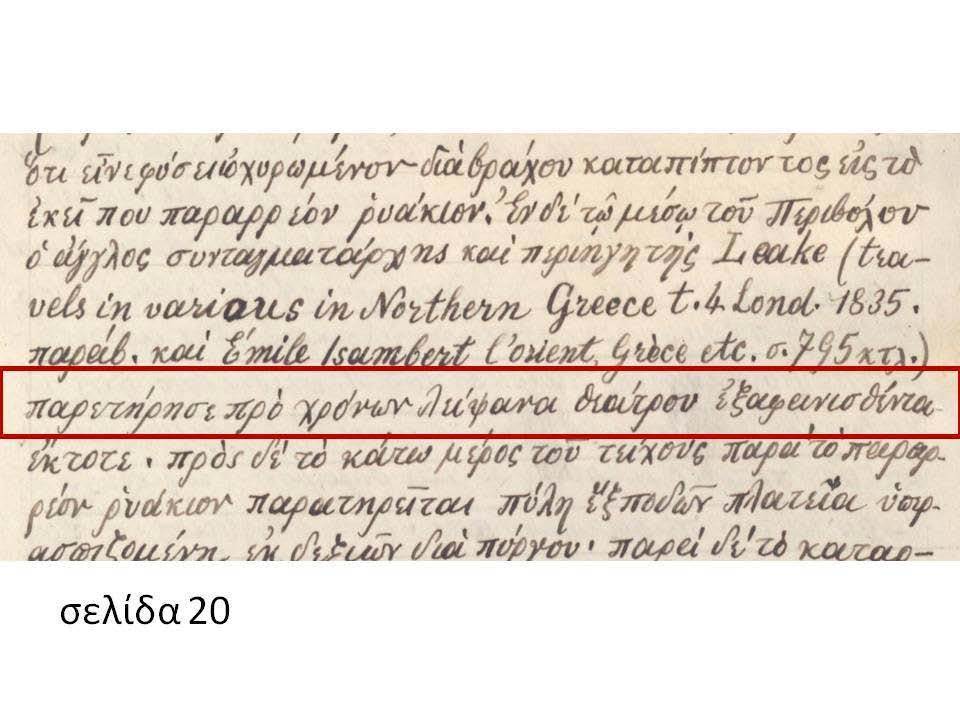 ὅτι εἶνε φύσει ὠχυρωμένον διὰ βράχου καταπίπτοντος εἰς τὸ
ἐκεῖ που παραρρέον ῥυάκιον. Ἐν δὲ τῷ μέσῳ τοῦ Περιβόλου
ὁ ἄγγλος συνταγματάρχης καὶ περιηγητής Leake (tra-
vels in various in Northern Greece t. 4 Lond. 1835.
παράβ. καὶ Émile Isambert l'orient, Grèce etc. σ. 795 κτλ.)
παρετήρησε πρὸ χρόνων λείψανα θεάτρου ἐξαφανισθέντα
ἔκτοτε. πρὸς δὲ τὸ κάτω μέρος τοῦ τείχους παρὰ τὸ παραρ-
ρέον ῥυάκιον παρατηρεῖται πύλη ἓξ ποδῶν πλατεῖα ὑπε-
ρασπιζομένη ἐκ δεξιῶν διὰ πύργου. παρὰ δὲ τὸ καταρ-
σελίδα 20